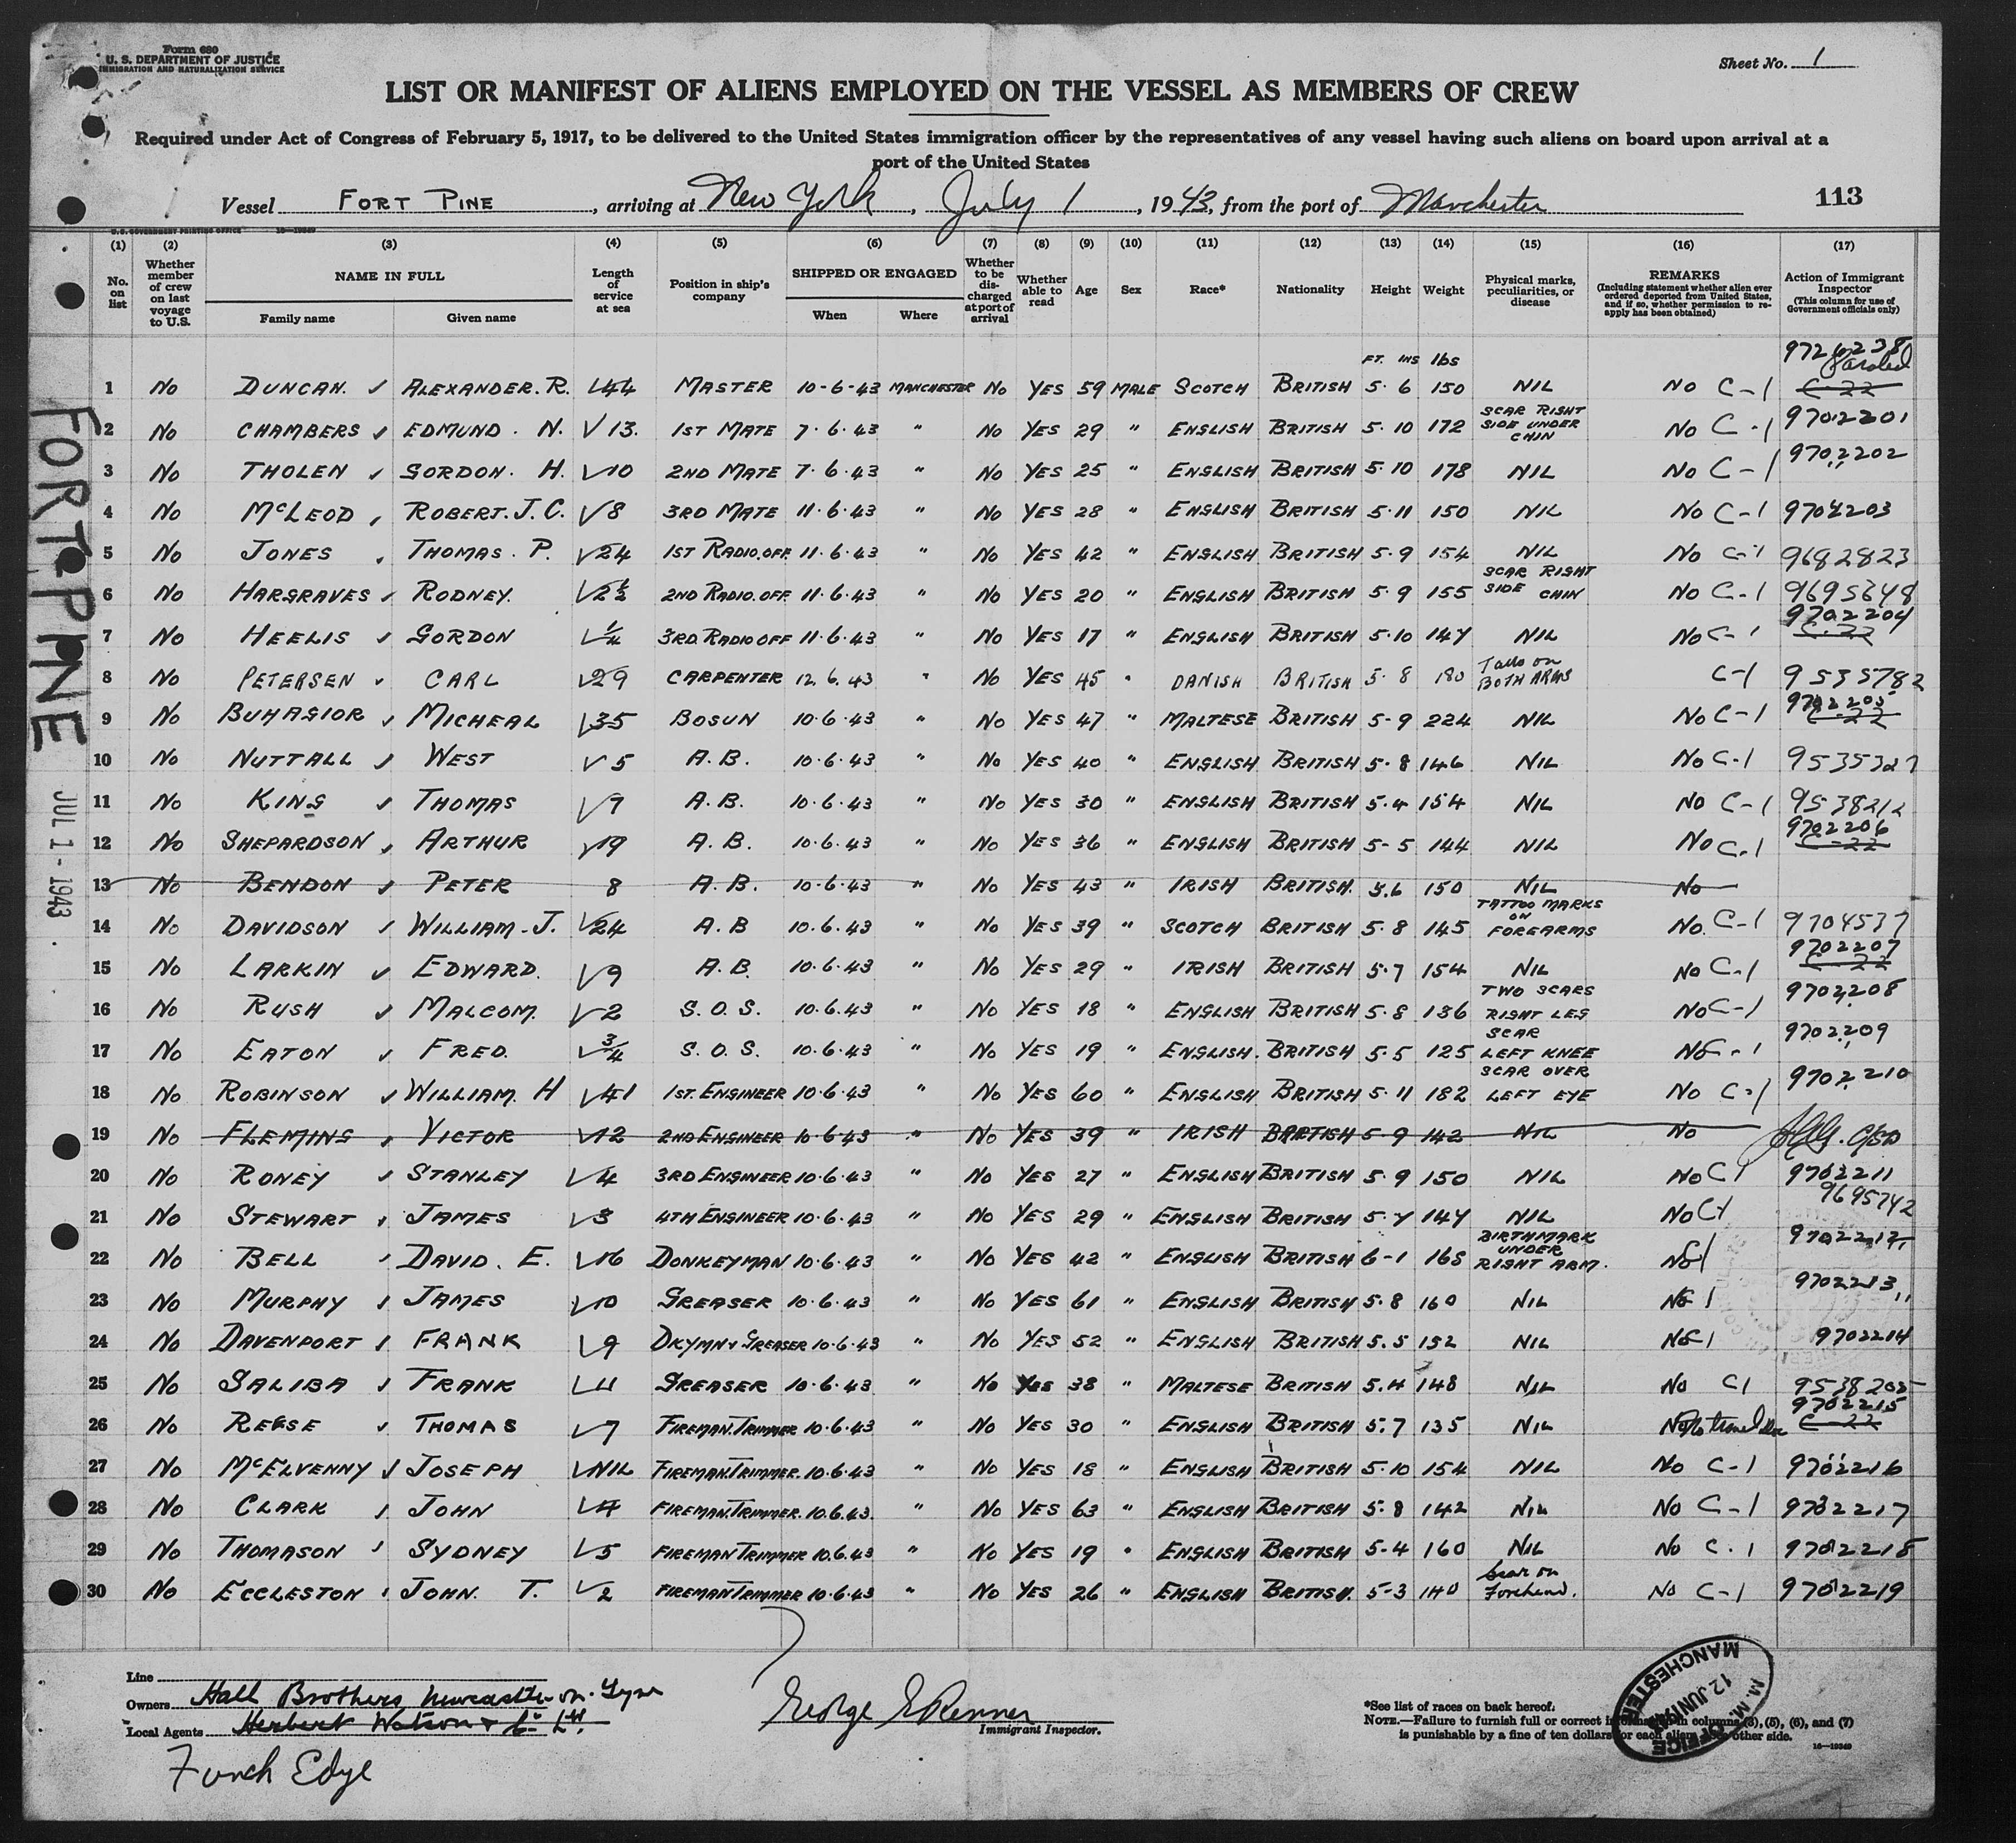 Form 680
U. S. DEPARTMENT OF JUSTICE
IMMIGRATION AND NATURALIZATION SERVICE
Sheet No. 1
LIST OR MANIFEST OF ALIENS EMPLOYED ON THE VESSEL AS MEMBERS OF CREW
Required under Act of Congress of February 5, 1917, to be delivered to the United States immigration officer by the representatives of any vessel having such aliens on board upon arrival at a
port of the United States
Vessel FORT PINE, arriving at New York, July 1, 1943, from the port of Manchester 113
U.S. GOVERNMENT PRINTING OFFICE 16—19349
(1) (2) (3) (4) (5) (6) (7) (8) (9) (10) (11) (12) (13) (14) (15) (16) (17)
No. on list
Whether member of crew on last voyage to U.S.
NAME IN FULL
Family name
Given name
Length of service at sea
Position in ship's company
SHIPPED OR ENGAGED
When
Where
Whether to be discharged at port of arrival
Whether able to read
Age
Sex
Race*
Nationality
Height
Weight
Physical marks, peculiarities, or disease
REMARKS
(Including statement whether alien ever ordered deported from United States, and if so, whether permission to reapply has been obtained)
Action of Immigrant Inspector
(This column for use of Government officials only)
FT. INS lbs
1 No DUNCAN. ALEXANDER. R. 44 MASTER 10-6-43 MANCHESTER No YES 59 MALE SCOTCH BRITISH 5 6 150 NIL No C-1 9726238 Paroled C-22
2 No CHAMBERS EDMUND. N. 13. 1ST MATE 7.6.43 " No YES 29 " ENGLISH BRITISH 5.10 172 SCAR RIGHT SIDE UNDER CHIN No C-1 9702201
3 No THOLEN GORDON. H. 10 2ND MATE 7.6.43 " No YES 25 " ENGLISH BRITISH 5.10 178 NIL No C-1 9702202
4 No McLEOD ROBERT. J. C. 8 3RD MATE 11.6.43 " No YES 28 " ENGLISH BRITISH 5.11 150 NIL No C-1 9702203
5 No JONES THOMAS. P. 24 1ST RADIO.OFF. 11.6.43 " No YES 42 " ENGLISH BRITISH 5.9 154 NIL No C-1 9682823
6 No HARGRAVES RODNEY. 2½ 2ND RADIO.OFF 11.6.43 " No YES 20 " ENGLISH BRITISH 5.9 155 SCAR RIGHT SIDE CHIN No C-1 9695648
7 No HEELIS GORDON ¼ 3RD. RADIO OFF 11.6.43 " No YES 17 " ENGLISH BRITISH 5.10 147 NIL No C-1 9702204 C-22
8 No PETERSEN CARL 29 CARPENTER 12.6.43 " No YES 45 " DANISH BRITISH 5.8 180 Tatto on BOTH ARMS C-1 9535782
9 No BUHAGIOR MICHEAL 35 BOSUN 10.6.43 " No YES 47 " MALTESE BRITISH 5-9 224 NIL No C-1 9702205 C-22
10 No NUTTALL WEST 5 A.B. 10.6.43 " No YES 40 " ENGLISH BRITISH 5.8 146 NIL No C-1 9535327
11 No KING THOMAS 7 A.B. 10.6.43 " No YES 30 " ENGLISH BRITISH 5.4 154 NIL No C-1 9538212
12 No SHEPARDSON ARTHUR 19 A.B. 10.6.43 " No YES 36 " ENGLISH BRITISH 5-5 144 NIL No C-1 9702206 C-22
13 No BENDON PETER 8 A.B. 10.6.43 " No YES 43 " IRISH BRITISH. 5.6 150 NIL No
14 No DAVIDSON WILLIAM-J. 24 A.B 10.6.43 " No YES 39 " SCOTCH BRITISH 5.8 145 TATTOO MARKS ON FOREARMS No. C-1 9704537
15 No LARKIN EDWARD. 9 A.B. 10.6.43 " No YES 29 " IRISH BRITISH 5.7 154 NIL No C-1 9702207 C-22
16 No RUSH MALCOM. 2 S.O.S. 10.6.43 " No YES 18 " ENGLISH BRITISH 5.8 136 TWO SCARS RIGHT LEG No C-1 9702208
17 No EATON FRED. ¾ S.O.S. 10.6.43 " No YES 19 " ENGLISH. BRITISH 5.5 125 SCAR LEFT KNEE No C-1 9702209
18 No ROBINSON WILLIAM. H 41 1ST. ENGINEER 10.6.43 " No YES 60 " ENGLISH BRITISH 5.11 182 SCAR OVER LEFT EYE No C-1 9702210
19 No FLEMING VICTOR 12 2ND ENGINEER 10.6.43 " No YES 39 " IRISH BRITISH 5-9 142 NIL No
20 No RONEY STANLEY 4 3RD ENGINEER 10.6.43 " No YES 27 " ENGLISH BRITISH 5.9 150 NIL No C1 9702211
21 No STEWART JAMES 3 4TH ENGINEER 10.6.43 " No YES 29 " ENGLISH BRITISH 5.7 147 NIL No C1 9695742
22 No BELL DAVID. E. 16 DONKEYMAN 10.6.43 " No YES 42 " ENGLISH BRITISH 6-1 168 BIRTHMARK UNDER RIGHT ARM. No C1 9702212
23 No MURPHY JAMES 10 GREASER 10.6.43 " No YES 61 " ENGLISH BRITISH 5.8 160 NIL No C1 9702213
24 No DAVENPORT FRANK 9 DKYMN & GREASER 10.6.43 " No YES 52 " ENGLISH BRITISH 5.5 152 NIL No C1 9702214
25 No SALIBA FRANK 11 GREASER 10.6.43 " No YES 38 " MALTESE BRITISH 5.4 148 NIL No C1 9538205
26 No REESE THOMAS 7 FIREMAN.TRIMMER 10.6.43 " No YES 30 " ENGLISH BRITISH 5.7 135 NIL No No travel doc 9702215 C-22
27 No McELVENNY JOSEPH NIL FIREMAN.TRIMMER. 10.6.43 " No YES 18 " ENGLISH BRITISH 5.10 154 NIL No C-1 9702216
28 No CLARK JOHN 4 FIREMAN.TRIMMER. 10.6.43. " No YES 63 " ENGLISH BRITISH 5.8 142 NIL No C-1 9702217
29 No THOMASON SYDNEY 5 FIREMAN TRIMMER 10.6.43 " No YES 19 " ENGLISH BRITISH 5-4 160 NIL No C.1 9702218
30 No ECCLESTON JOHN. T. 2 FIREMAN TRIMMER 10.6.43 " No YES 26 " ENGLISH BRITISH. 5-3 140 Scar on Forehead. No C-1 9702219
FORT PINE
JUL 1-1943
Line
Owners Hall Brothers Newcastle on-Tyne
Local Agents Herbert Watson & Co Ltd.
Funch Edye
George E Renner
Immigrant Inspector.
*See list of races on back hereof.
NOTE.—Failure to furnish full or correct information in columns (3), (5), (6), and (7)
is punishable by a fine of ten dollars for each alien. See other side.
16—19349
M. M. OFFICE
12 JUN 1943
MANCHESTER